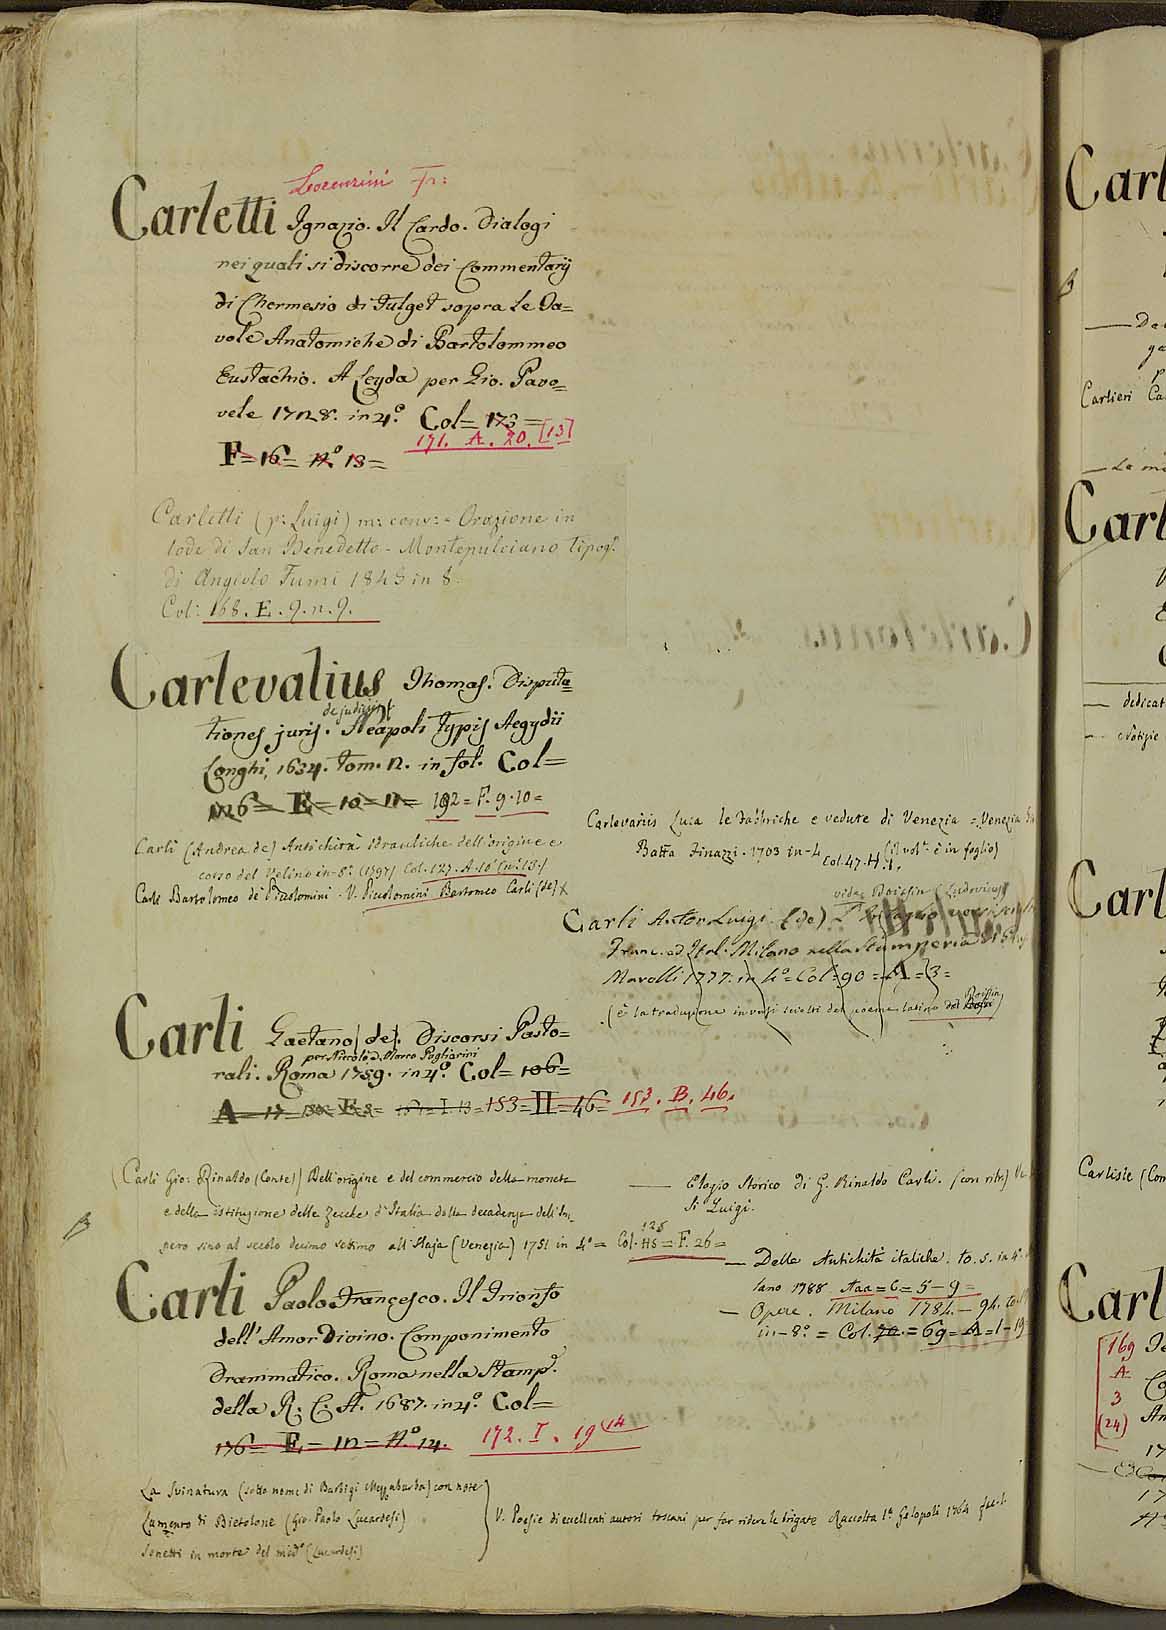 Lorenzini Fr:
Carletti Ignazio. Il Cardo. Dialogi
nei quali si discorre dei Commentarij
di Chermesio di Fulget sopra le Ta=
vole Anatomiche di Bartolommeo
Eustachio. A Leyda per Gio. Pavo=
vele 1728. in 4.º Col= 173 =
171. A. 20. [13]
F= 16= N.º 13=
Carletti (p: Luigi) m: conv: = Orazione in
lode di San Benedetto - Montepulciano tipog.
di Angiolo Fumi 1845 in 8.
Col: 168. E. 9. n. 9.
Carlevalius Thomas. Disputa=
de judiciis
tiones juris. Neapoli typis Aegydii
Longhi, 1634. tom. 2. in fol. Col=
E= 10= 11= 192= F. 9. 10=
Carli (Andrea de) Antichità Idrauliche dell'origine e
corso del Velino in-8º (1797) Col. 127. A. 16 (n. 13.)
Carli Bartolomeo de' Piccolomini. V. Piccolomini Bartomeo Carli (de)
Carli Gaetano (de). Discorsi Pasto=
per Niccolò, e Marco Pagliarini
rali. Roma 1759. in 4.º Col= 106=
A= 17= E 153= II= 46= 153. B. 46.
Carli Gio: Rinaldo (Conte) Dell'origine e del commercio della moneta
e della istituzione delle Zecche d'Italia dalla decadenza dell'Im-
pero sino al secolo decimo settimo all'Haja (Venezia) 1751 in 4º = Col. 115 = F. 26 =
128
Carli Paolo Francesco. Il Trionfo
dell'Amor Divino. Componimento
Drammatico. Roma nella Stamp.ª
della R. C. A. 1687. in 4.º Col=
176= E= 12= N.º 14. 172. I. 19 (14
La Svinatura (sotto nome di Barbigi Mezzabarba) con note
Lamento di Bietolone (Gio. Paolo Lucardesi)
Sonetti in morte del med.º (Lucardesi)
V. Poesie di eccellenti autori toscani per far ridere le brigate Raccolta 1ª Gelopoli 1764
Carlevariis Luca le Fabbriche e vedute di Venezia = Venezia
Batta Finazzi. 1703 in-4 (il vol. è in foglio)
Col. 47. H. 1.
vide Boissin (Ludovicus)
Carli Anton Luigi (de)
Franc. ad Ital. Milano nella Stamperia di
Marelli 1777. in 4º = Col = 90 = A = 3 =
(è la traduzione in versi sciolti del poema latino del Boissin)
— Elogio Storico di G. Rinaldo Carli. (con ritr.)
di Luigi.
— Delle Antichità italiche. to. 5. in 4º
lano 1788 Aaa = 6 = 5 - 9 =
— Opere. Milano 1784. - 94. to.
in-8º = Col. 70. = 69 = A = 1 - 19
Carl
Carlieri Ca
Carl
dedicat
Notizie
Carl
Carlisle (Con
Carl
169
A
3
(24)